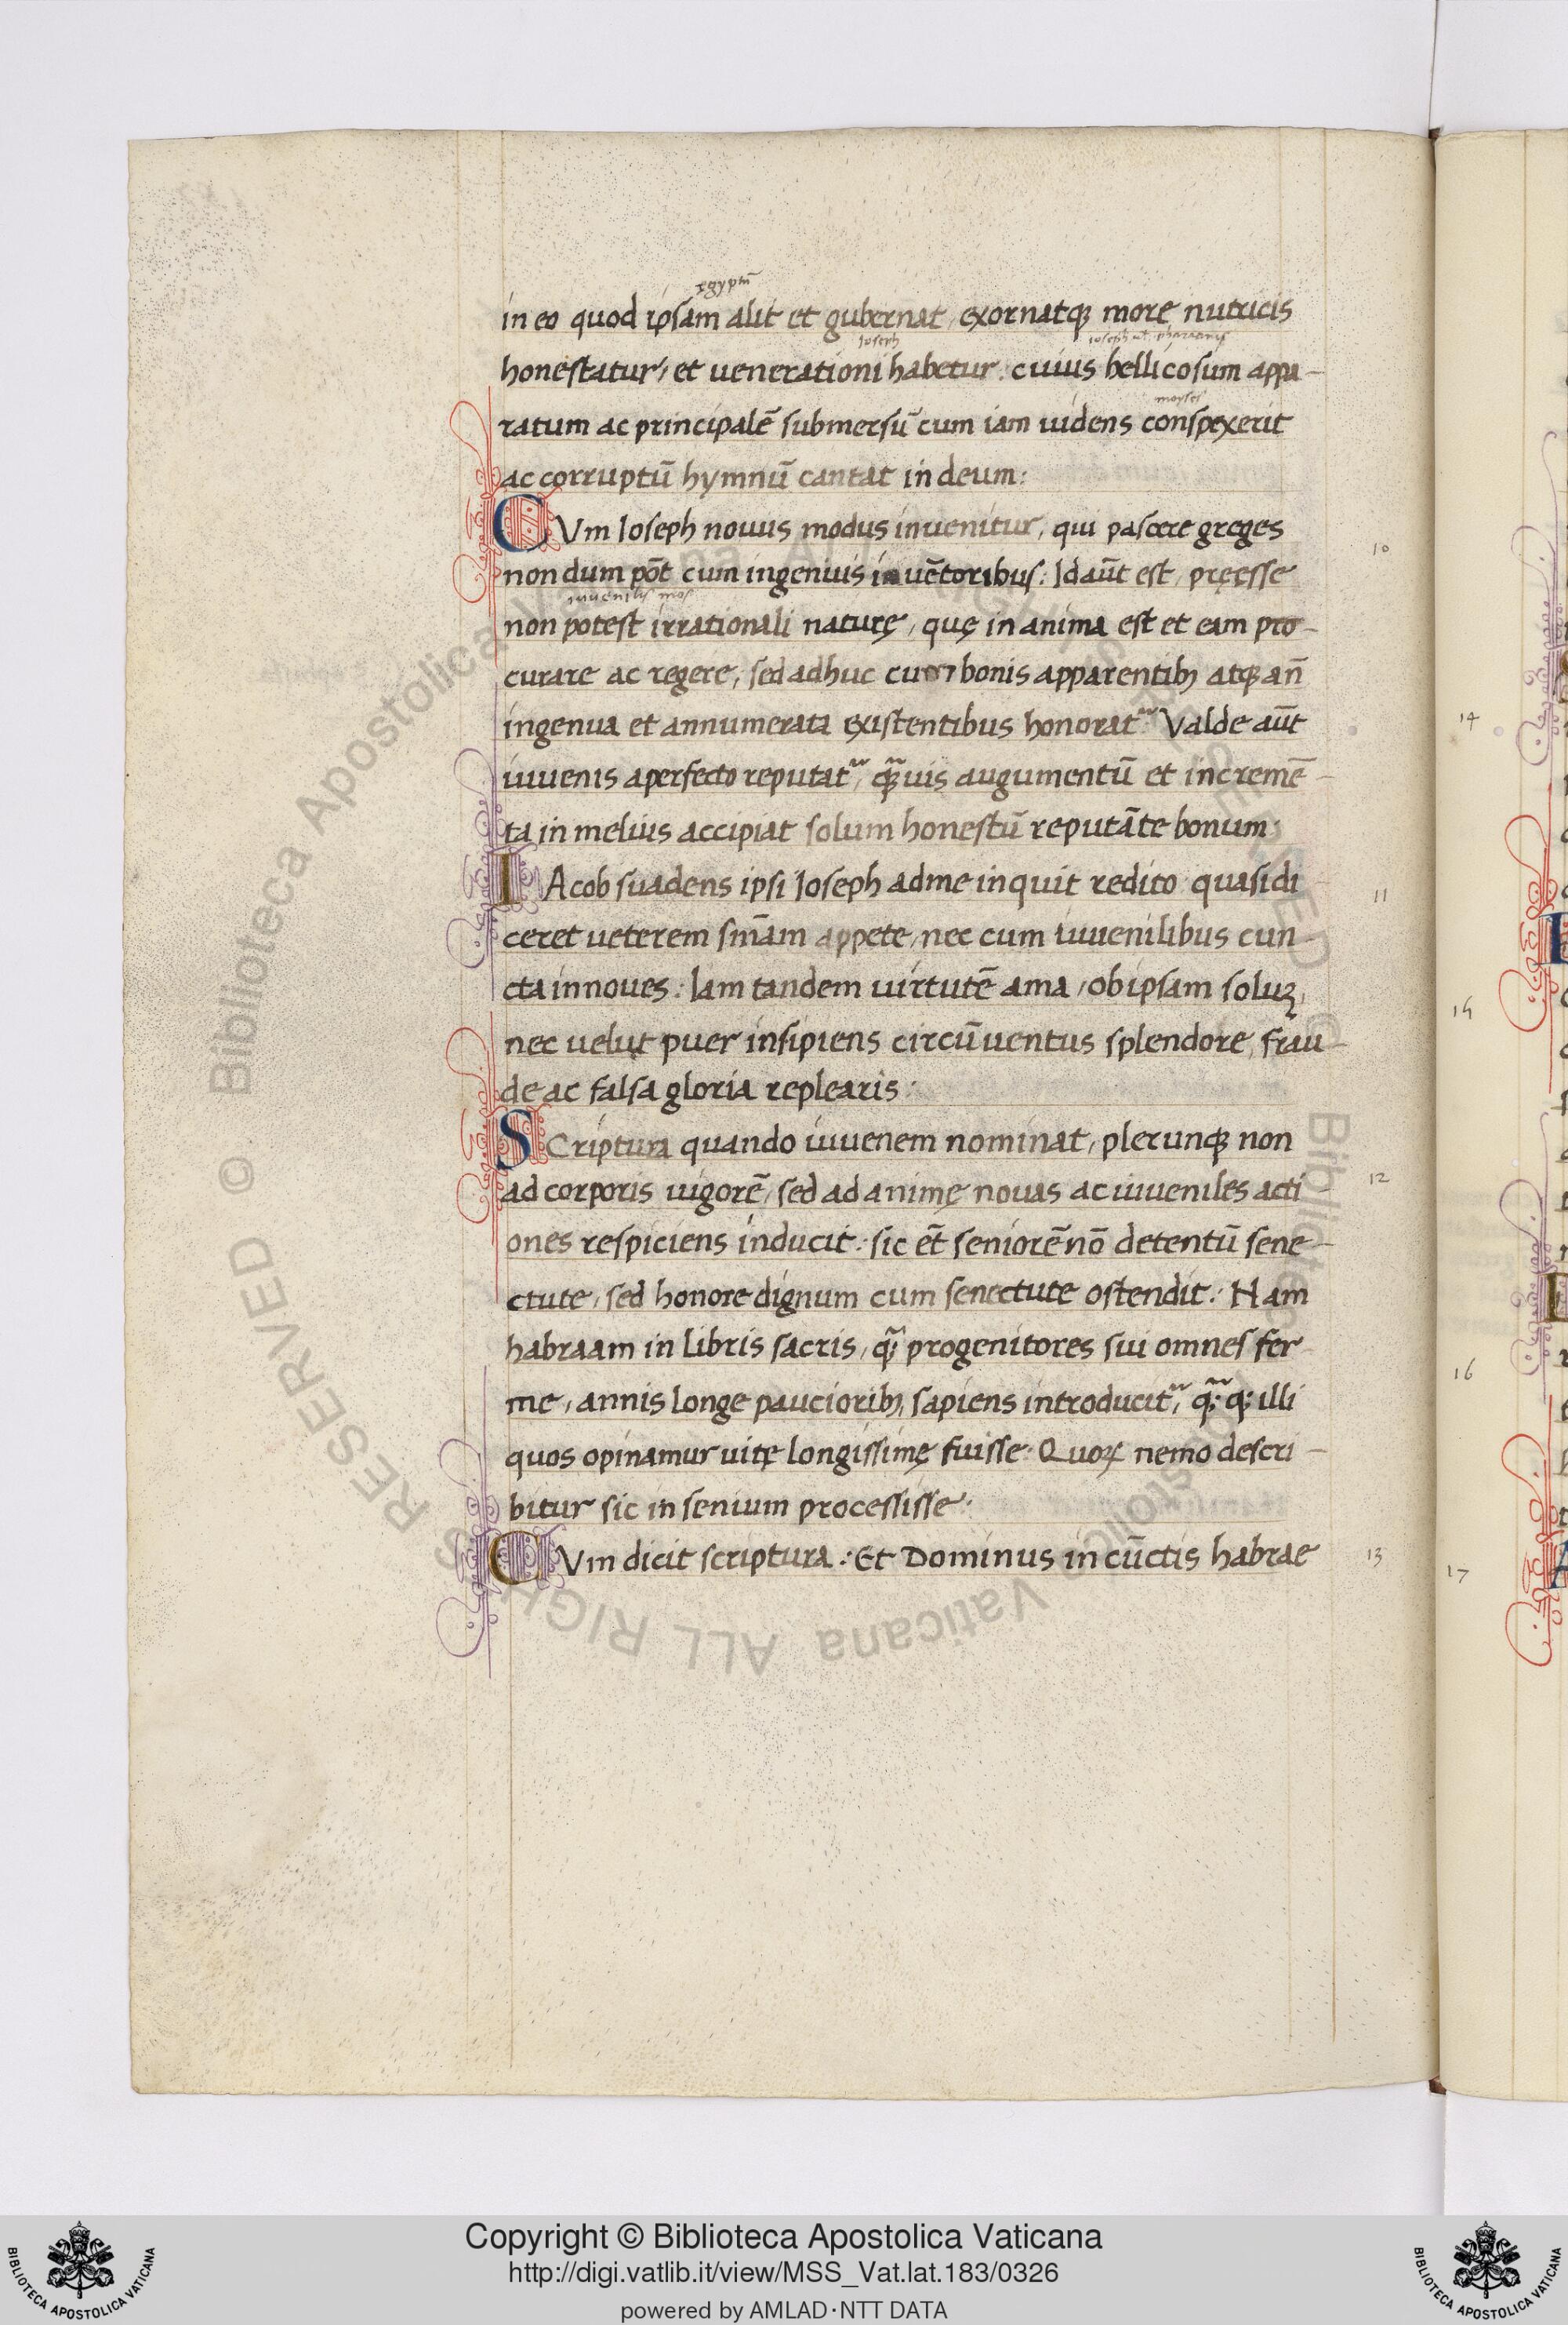 ęgyptū
in eo quod ipsam alit et gubernat, exornatq; more nutricis
Ioseph ioseph ut pharaonis
honestatur, et uenerationi habetur: cuius bellicosum appa-
moyses
ratum ac principalē submersū cum iam uidens conspexerit
ac corruptū hymnū cantat in deum:
CVm Ioseph nouus modus inuenitur, qui pascere greges 10
nondum pōt cum ingenuis inuētoribus: Id aūt est, pręesse
iuuenilis mos
non potest irrationali naturę, quę in anima est et eam pro-
curare ac regere, sed adhuc cum bonis apparentib; atq; an̄
ingenua et annumerata existentibus honorat~: Valde aūt 14
iuuenis a perfecto reputat~, q̄uis augumentū et incremē-
ta in melius accipiat solum honestū reputāte bonum:
IAcob suadens ipsi Ioseph ad me inquit redito quasi di- 11
ceret ueterem sn̄iam appete, nec cum iuuenilibus cun-
cta innoues: Iam tandem uirtutē ama, ob ipsam soluȝ, 15
nec uelut puer insipiens circūuentus splendore, frau-
de ac falsa gloria replearis:
SCriptura quando iuuenem nominat, plerunq; non
ad corporis uigorē, sed ad animę nouas ac iuueniles acti- 12
ones respiciens inducit: sic et̄ seniorē nō detentū sene-
ctute, sed honore dignum cum senectute ostendit: Nam
habraam in libris sacris, q̄ progenitores sui omnes fer
me, annis longe pauciorib; sapiens introducit~, q̄; q; illi 16
quos opinamur uitę longissimę fuisse: Quoꝝ nemo descri-
bitur sic in senium processisse:
CVm dicit scriptura: Et Dominus in cūctis habrae 13 17
Biblioteca Apostolica Vaticana ALL RIGHTS RESERVED ©
Copyright © Biblioteca Apostolica Vaticana
http://digi.vatlib.it/view/MSS_Vat.lat.183/0326
powered by AMLAD·NTT DATA
BIBLIOTECA APOSTOLICA VATICANA
BIBLIOTECA APOSTOLICA VATICANA